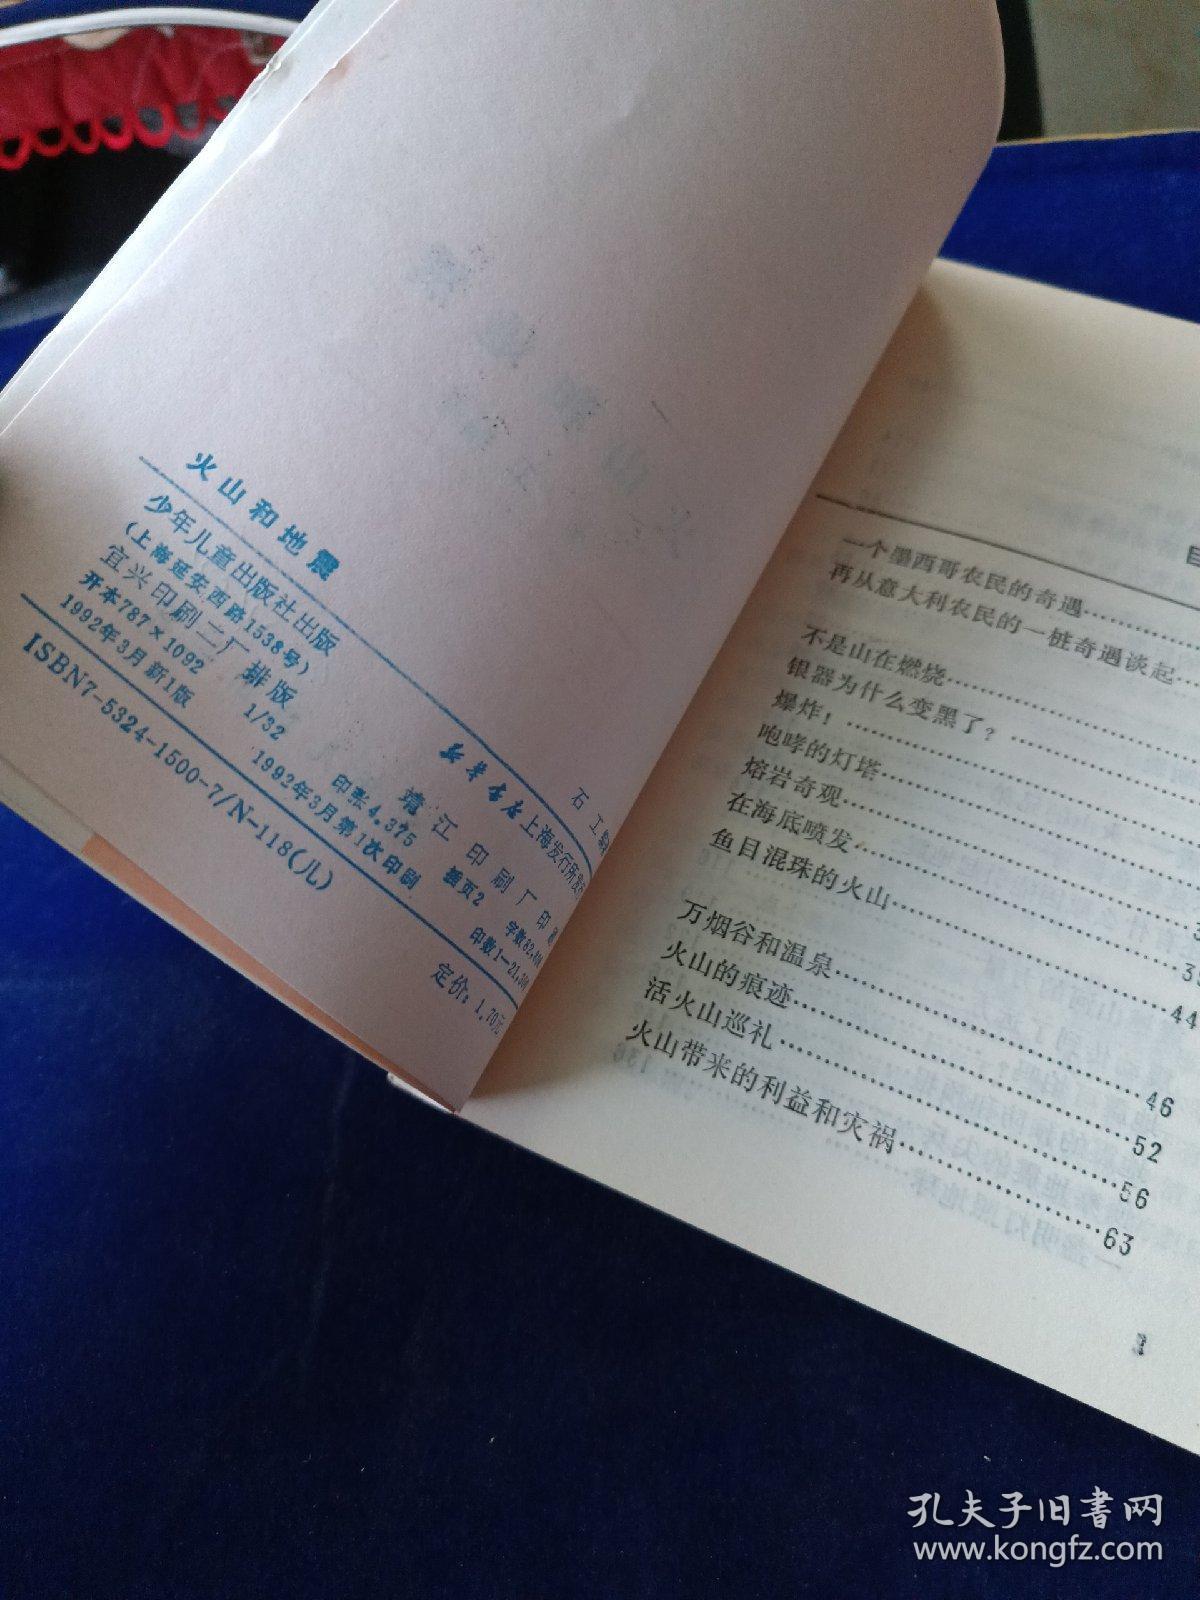 火山和地震
石工
少年儿童出版社出版
(上海延安西路1538号)
新华书店上海发行所发行
宜兴印刷二厂排版 靖江印刷厂印
开本787×1092 1/32 印张4.375 插页2 字数82,
1992年3月新1版 1992年3月第1次印刷 印数1—21,
ISBN7-5324-1500-7/N-118(儿) 定价:1.70元
一个墨西哥农民的奇遇
再从意大利农民的一桩奇遇谈起
不是山在燃烧
银器为什么变黑了?
爆炸!
咆哮的灯塔
熔岩奇观
在海底喷发
鱼目混珠的火山
万烟谷和温泉 46
火山的痕迹 52
活火山巡礼 56
火山带来的利益和灾祸 63
1
孔夫子旧书网
www.kongfz.com